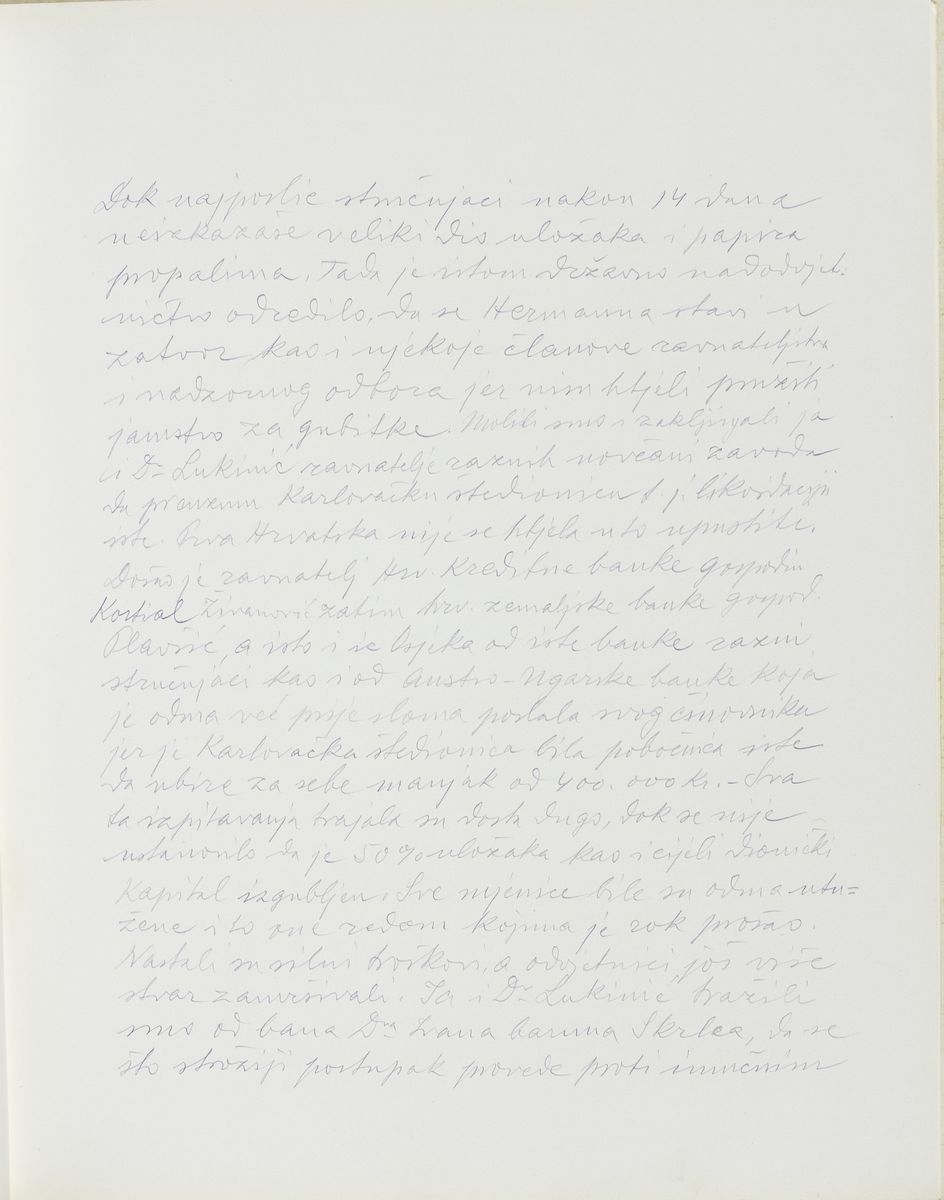 Dok najposlie stručnjaci nakon 14 dana
neizkazaše veliki dio uložaka i papira
propalima. Tada je istom državno nadodvjet-
ničtvo odredilo, da se Hermanna stavi u
zatvor kao i njekoje članove ravnateljstva
i nadzornog odbora jer nisu htjeli pružiti
jamstvo za gubitke. Molili smo i zaklinjali ja
i Dr Lukinić ravnatelje raznih novčani zavoda
da preuzmu Karlovačku štedionicu t. j. likvidaciju
iste. Prva Hrvatska nije se htjela u to upustiti.
Došao je ravnatelj Hrv. Kreditne banke gospodin
Kostial Živanović zatim hrv. zemaljske banke gospod.
Plavšić, a isto i iz Osjeka od iste banke razni
stručnjaci kao i od Austro-Ugarske banke koja
je odma već prije sloma poslala svog činovnika
jer je Karlovačka štedionica bila pobočnica iste
da ubire za sebe manjak od 400.000 Kr. - Sva
ta izpitavanja trajala su dosta dugo, dok se nije
ustanovilo da je 50% uložaka kao i cijeli dionički
Kapital izgubljen. Sve mjenice bile su odma utu=
žene i to one redom kojima je rok prošao.
Nastali su silni troškovi, a odvjetnici još više
stvar zamršivali. Ja i Dr Lukinić tražili
smo od bana Dra Ivana baruna Skrlca, da se
što strožiji postupak povede proti imućnim